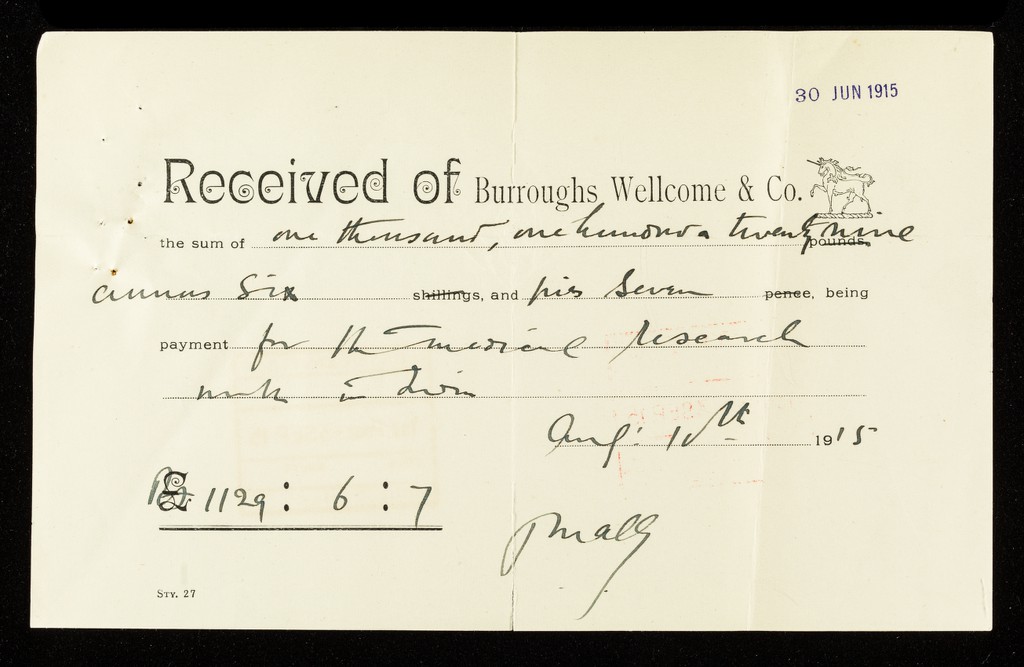 30 JUN 1915
Received of Burroughs Wellcome & Co.
the sum of one thousand, one hundred & twenty nine pounds
annas Six shillings, and pies Seven pence, being
payment for the medical research
work in
Aug: 10th 1915
Rs £ 1129 : 6 : 7
STY. 27